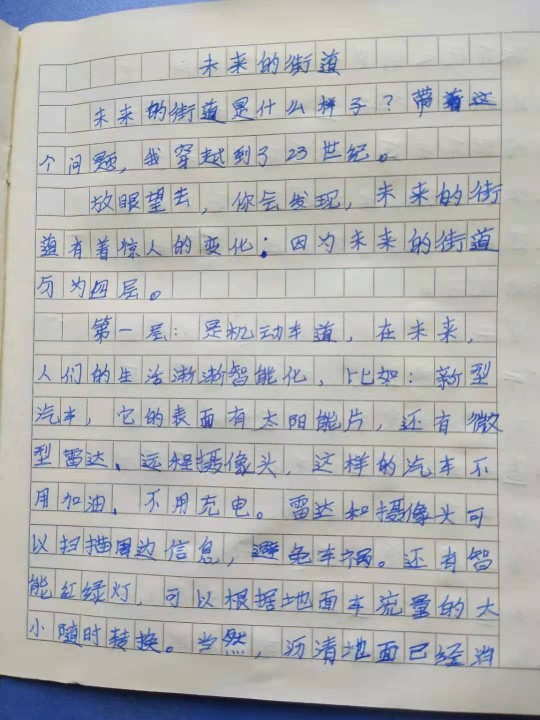 未来的街道
未来的街道是什么样子？带着这
个问题，我穿越到了23世纪。
放眼望去，你会发现，未来的街
道有着惊人的变化：因为未来的街道
分为四层。
第一层：是机动车道，在未来，
人们的生活渐渐智能化，比如：新型
汽车，它的表面有太阳能片，还有微
型雷达、远程摄像头，这样的汽车不
用加油，不用充电。雷达和摄像头可
以扫描周边信息，避免车祸。还有智
能红绿灯，可以根据地面车流量的大
小随时转换。当然，沥清地面已经消